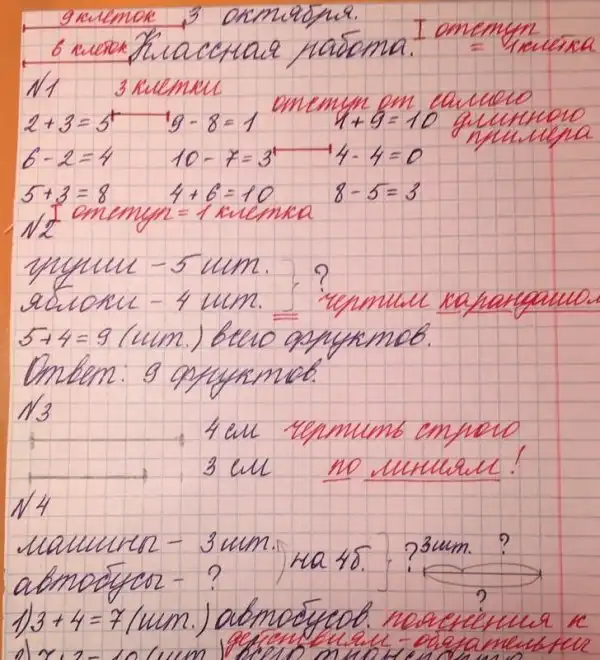 9 клеток 3 октября.
6 клеток Классная работа. отступ = 1 клетка
№1 3 клетки
отступ от самого длинного примера
2+3=5 9-8=1 1+9=10
6-2=4 10-7=3 4-4=0
5+3=8 4+6=10 8-5=3
отступ = 1 клетка
№2
груши - 5 шт.
яблоки - 4 шт. } ? чертим карандашом
5+4=9 (шт.) всего фруктов.
Ответ: 9 фруктов.
№3
4 см чертить строго
3 см по линиям!
№4
машины - 3 шт. 3 шт. ?
автобусы - ? на 4 б. } ? ?
1) 3+4=7 (шт.) автобусов. пояснения к
действиям - обязательны
2) 7+3=10 (шт.) всего